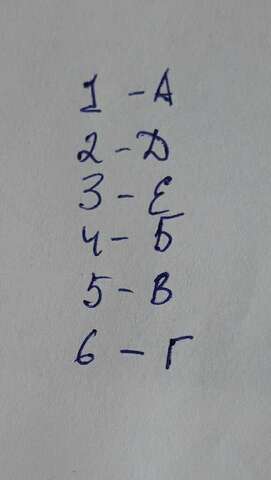 1 - А
2 - Д
3 - Е
4 - Б
5 - В
6 - Г